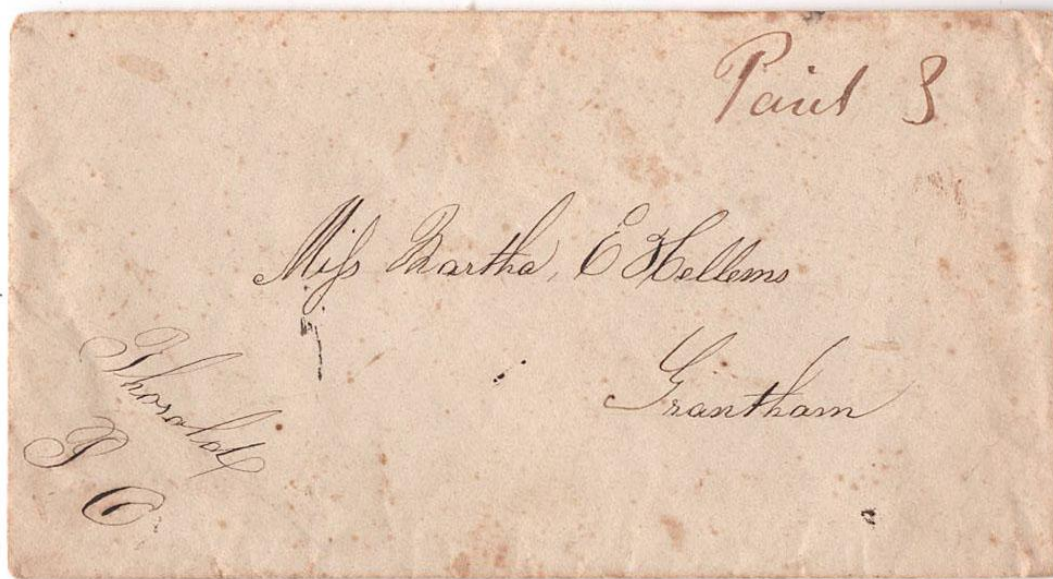 Paid 3
Miss Martha, E Hellems
Grantham
Thorold
P O